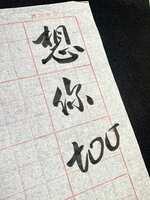 想你too